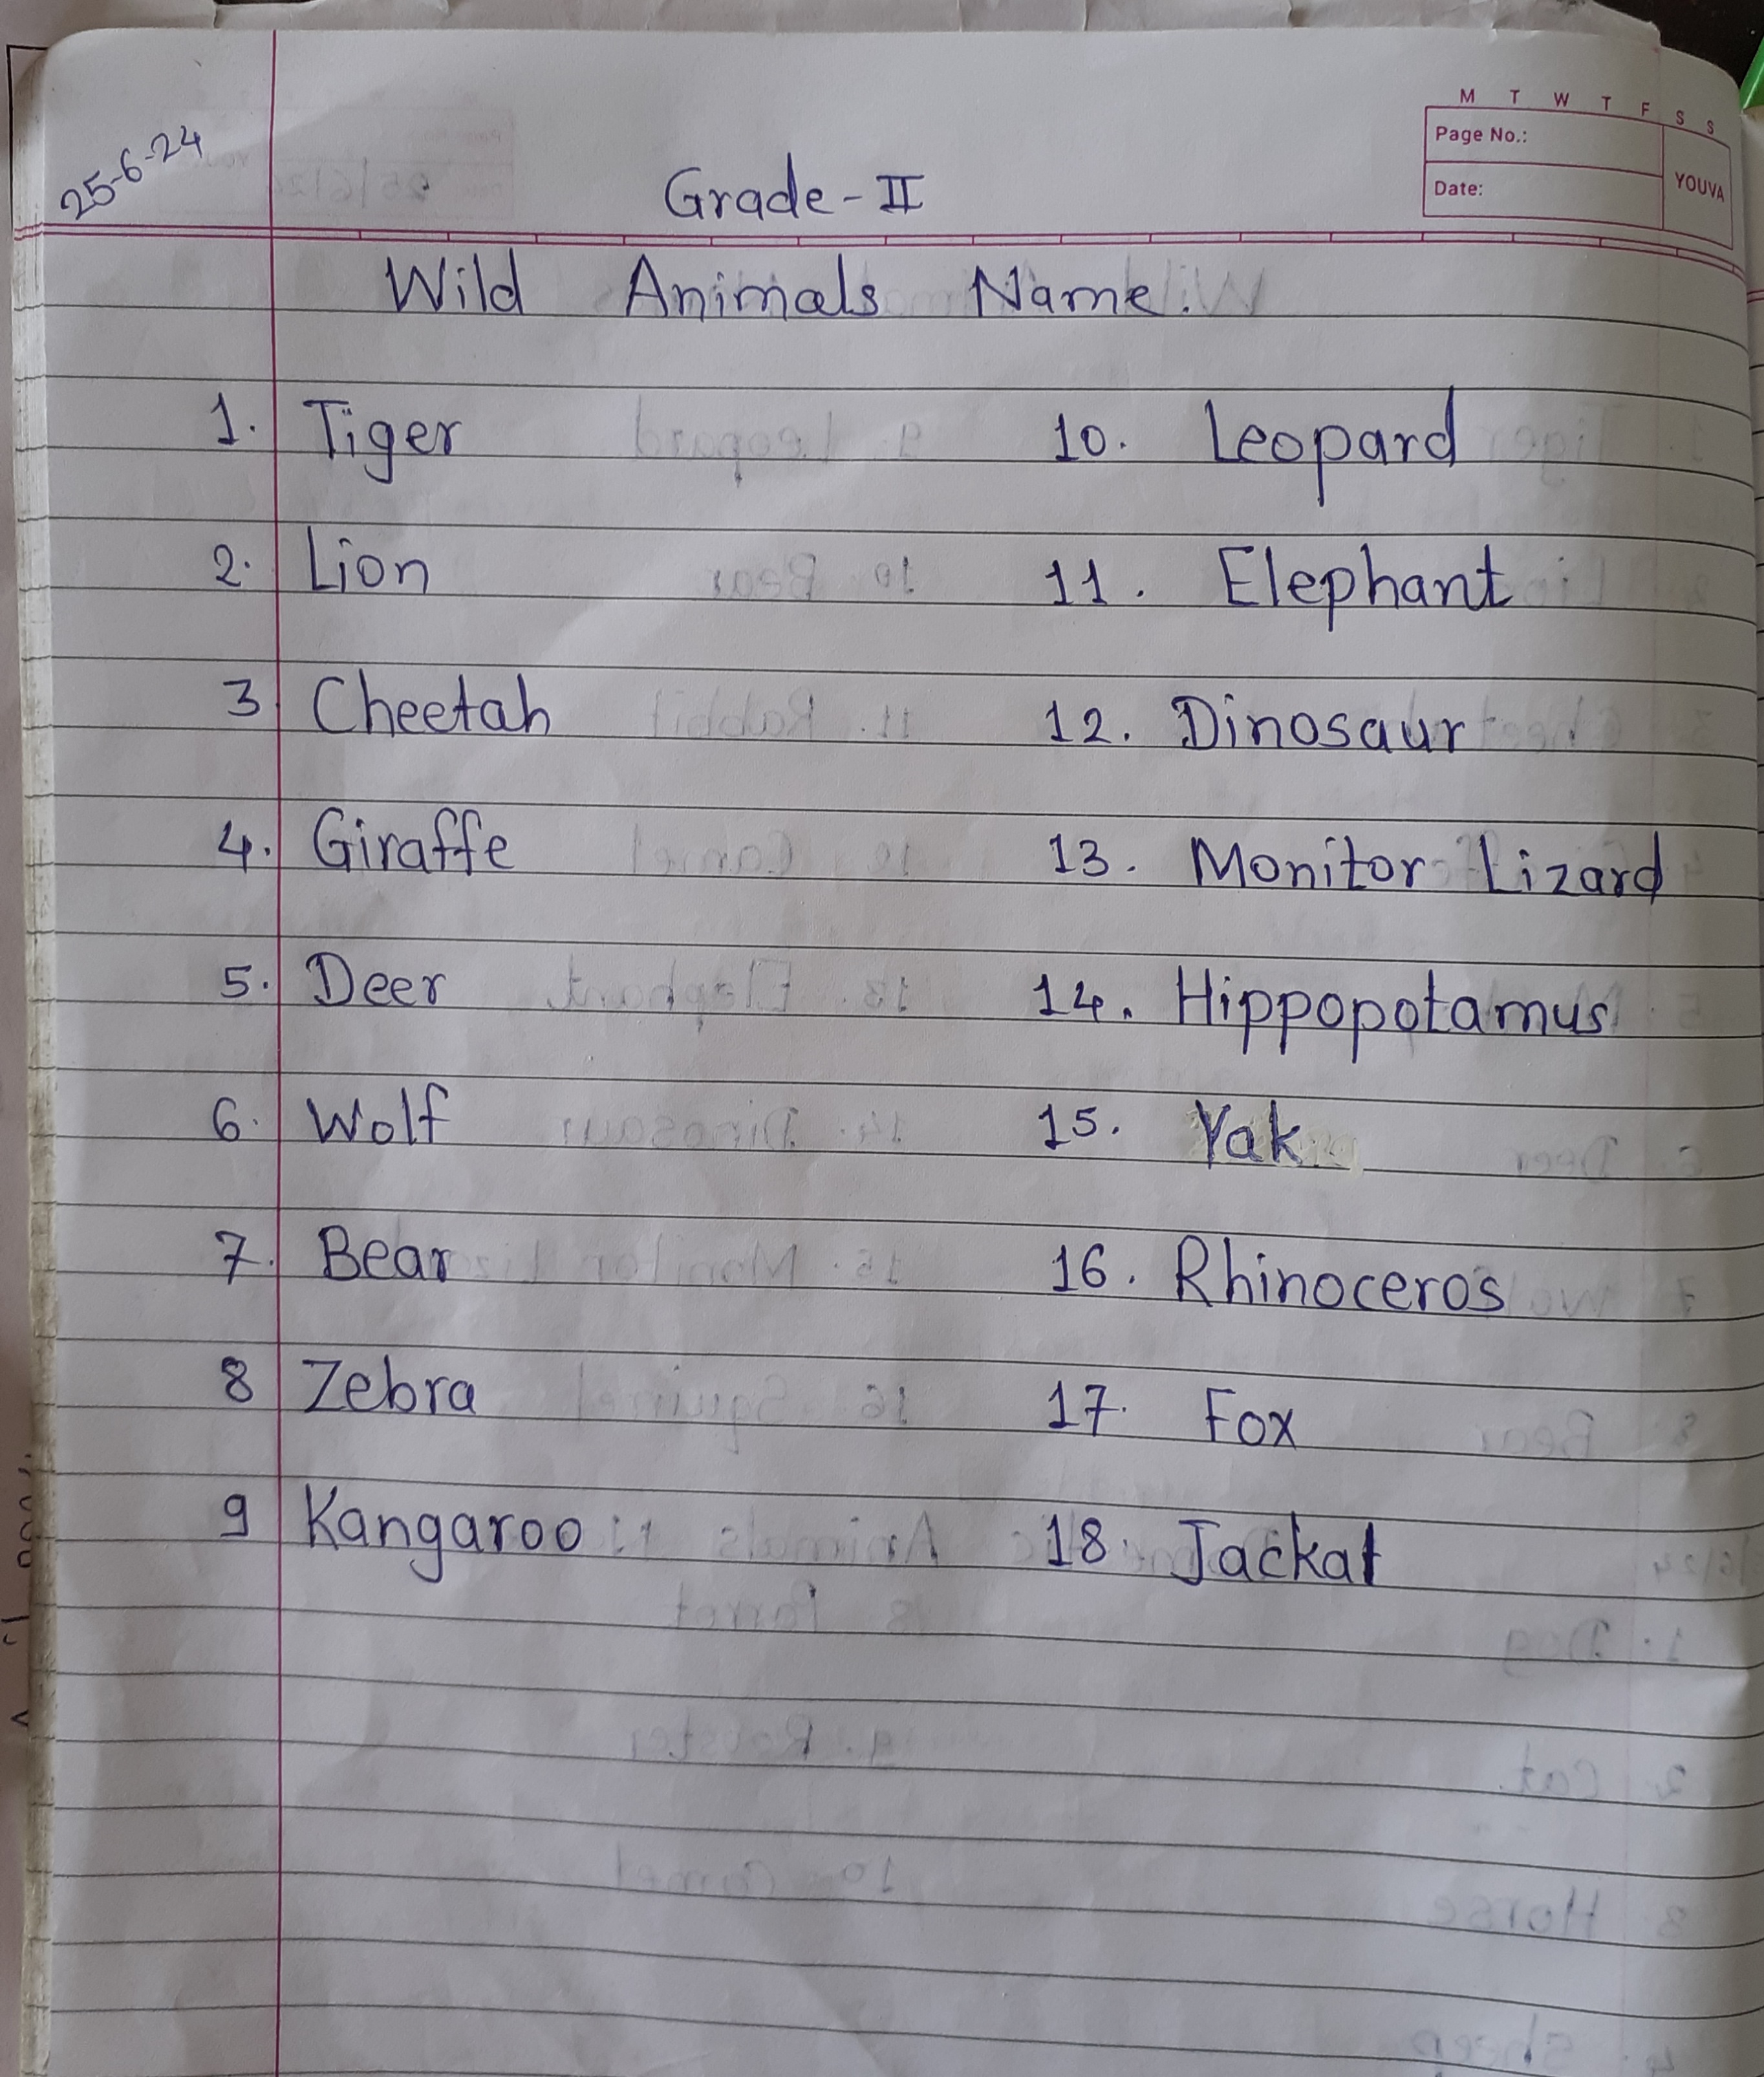 M T W T F S S
Page No.:
Date:
YOUVA
25-6-24
Grade - II
Wild Animals Name.
1. Tiger
2. Lion
3 Cheetah
4. Giraffe
5. Deer
6. Wolf
7. Bear
8 Zebra
9 Kangaroo
10. Leopard
11. Elephant
12. Dinosaur
13. Monitor Lizard
14. Hippopotamus
15. Yak
16. Rhinoceros
17. Fox
18. Jackal